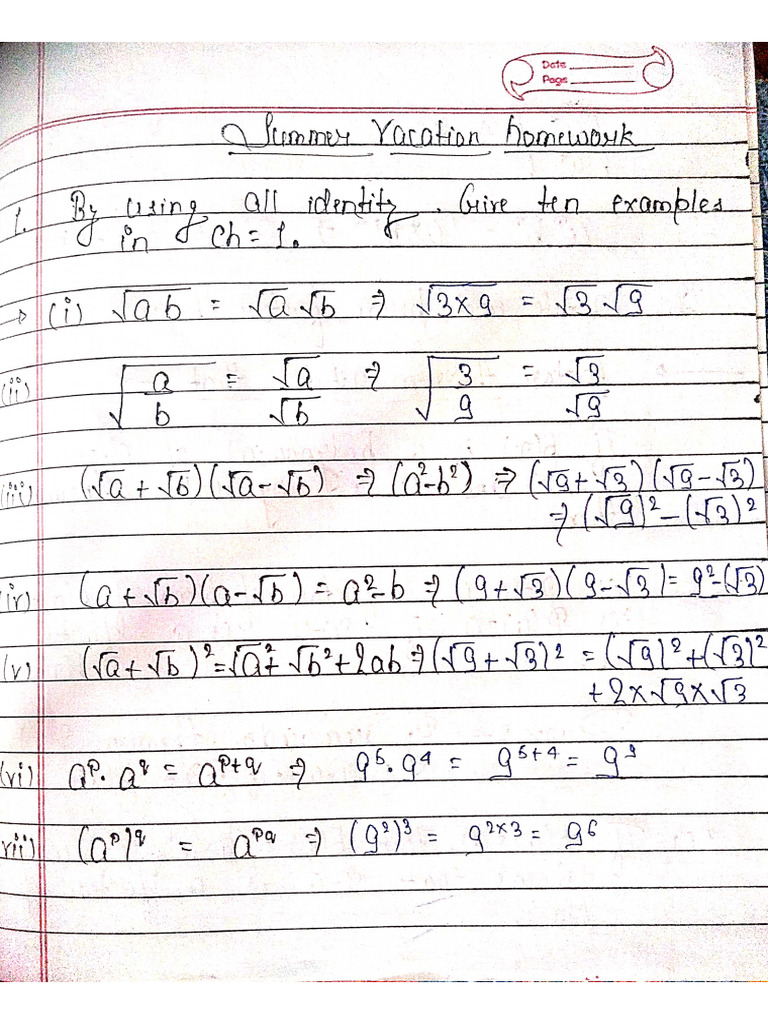 Date
Page
Summer Vacation homework
1. By using all identity. Give ten examples
in Ch = 1.
→ (i) √ab = √a √b ⇒ √3×9 = √3 √9
(ii) √a/b = √a/√b ⇒ √3/9 = √3/√9
(iii) (√a + √b)(√a - √b) ⇒ (a²-b²) ⇒ (√9 + √3)(√9 - √3)
⇒ (√9)² - (√3)²
(iv) (a + √b)(a - √b) = a² - b ⇒ (9 + √3)(9 - √3) = 9² - (√3)
(v) (√a + √b)² = √a² + √b² + 2ab ⇒ (√9 + √3)² = (√9)² + (√3)²
+ 2 × √9 × √3
(vi) aᵖ · a^q = a^p+q ⇒ 9⁵ · 9⁴ = 9⁵⁺⁴ = 9⁹
(vii) (aᵖ)^q = a^pq ⇒ (9²)³ = 9^2×3 = 9⁶